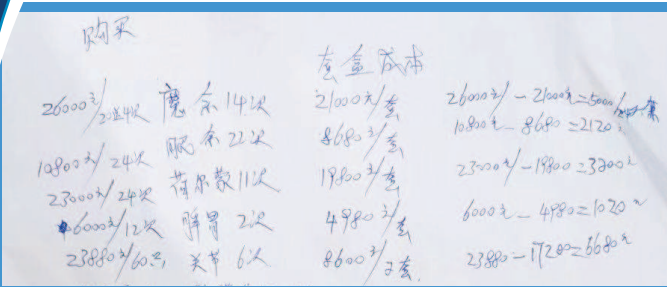 购买
套盒成本
26000元/20送4次 魔余14次 21000元/套 26000元/-21000元=5000/
10800元/24次 腸余22次 8680元/套 10800元-8680=2120
23000元/24次 荷尔蒙11次 19800元/套 23000元/-19800=3200元
6000元/12次 脾胃2次 4980元/套 6000元-4980=1020元
23880元/60 关节6次 8600元/2套 23880-17200=6680元